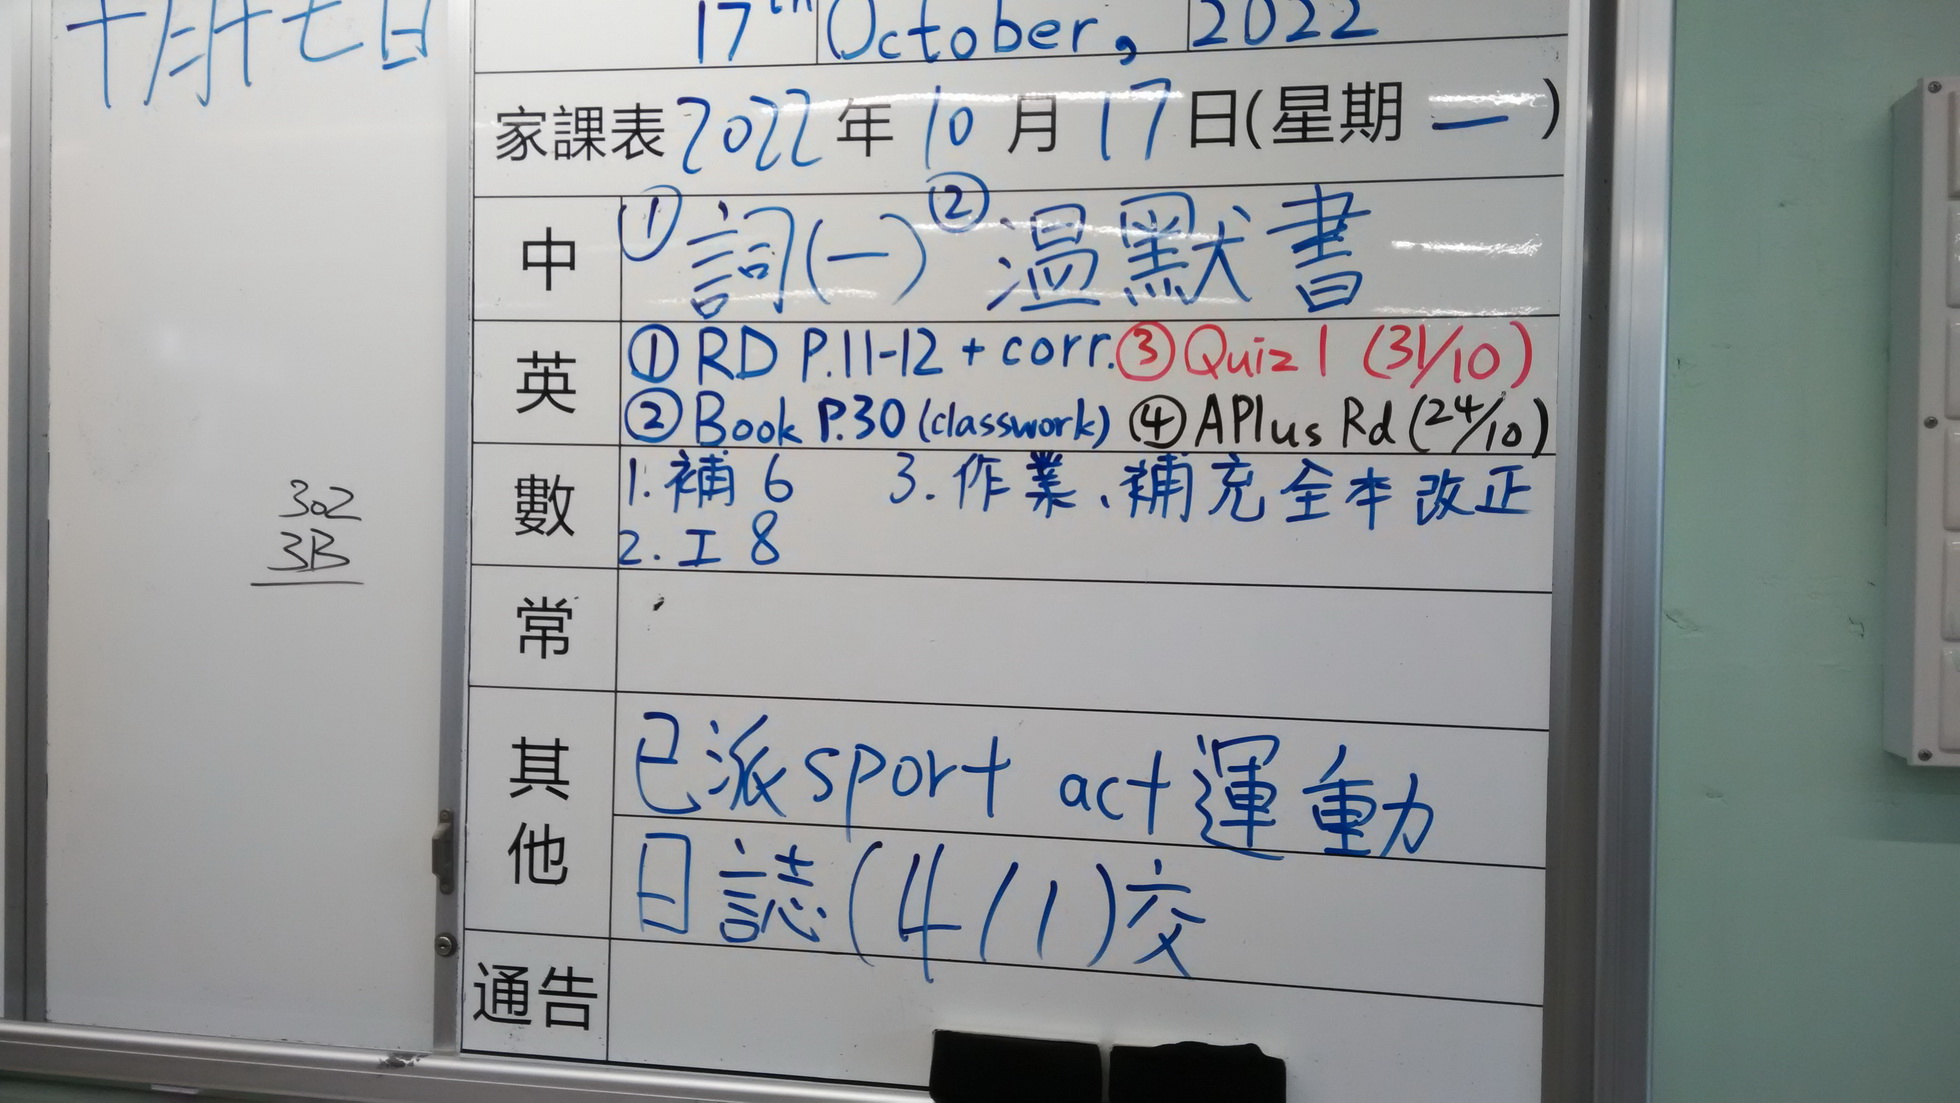 十月十七日
17th October, 2022
家課表 2022 年 10 月 17 日(星期 一 )
中 ① 詞(一) ② 温默書
英 ① RD P.11-12 + corr. ③ Quiz 1 (31/10)
② Book P.30 (classwork) ④ APlus Rd (24/10)
數 1. 補 6 3. 作業、補充全本改正
2. 工 8
302
3B
常
其他 已派 sport act 運動
日誌 (4/1) 交
通告